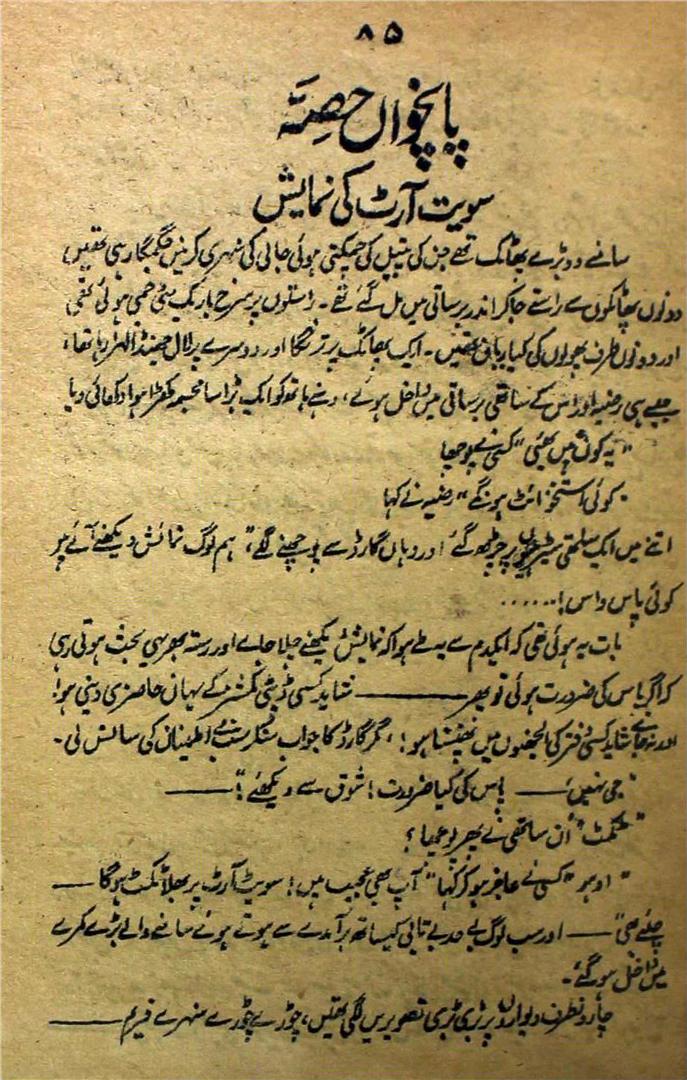 ۸۵
پانچواں حصّہ
سویت آرٹ کی نمایش
سامنے دو بڑے پھاٹک تھے جن کی پیتل کی چمکتی ہوئی جالی کی شہری کرنیں جگمگا رہی تھیں،
دونوں پھاٹکوں سے راستے جا کر اندر برساتی میں مل گئے تھے۔ راستوں پر سرخ باریک مٹی جمی ہوئی تھی
اور دونوں طرف پھولوں کی کیاریاں تھیں۔ ایک پھاٹک پر ترنگا اور دوسرے پر لال جھنڈا لہرا رہا تھا،
جیسے ہی رضیہ اور اس کے ساتھی برساتی میں داخل ہوئے، دہنے ہاتھ کو ایک بڑا سا مجسمہ کھڑا ہوا دکھائی دیا
"یہ کون ہیں بھئی" کسی نے پوچھا
"کوئی استخوائٹ ہونگے" رضیہ نے کہا
اتنے میں ایک ساتھی سیڑھیوں پر چڑھ گئے اور وہاں گارڈ سے پوچھنے لگے، "ہم لوگ نمائش دیکھنے آئے ہیں
کوئی پاس واس! ......
بات یہ ہوئی تھی کہ ایکدم سے یہ طے ہوا کہ نمایش دیکھنے چلا جائے اور رستہ بھر یہی بحث ہوتی رہی
کہ اگر پاس کی ضرورت ہوئی تو پھر ——— شاید کسی ڈپٹی کمشنر کے یہاں حاضری دینی ہو!
اور نہ جانے شاید کسی دفتر کی الجھنوں میں پھنسنا ہو!، مگر گارڈ کا جواب سنکر سب نے اطمینان کی سانس لی۔
"جی نہیں، —— پاس کی کیا ضرورت! شوق سے دیکھئے!" ——
"ٹکٹ" اُن ساتھی نے پھر پوچھا؟
"اوہو" کسی نے عاجز ہو کر کہا "آپ بھی عجیب ہیں! سویٹ آرٹ پر بھلا ٹکٹ ہوگا ——
چلئے بھی" —— اور سب لوگ بے حد بے تابی کیساتھ برآمدے سے ہوتے ہوئے سامنے والے بڑے کمرے
میں داخل ہو گئے۔
چاروں طرف دیواروں پر بڑی بڑی تصویریں لگی تھیں، چوڑے چوڑے سنہرے فریم ———